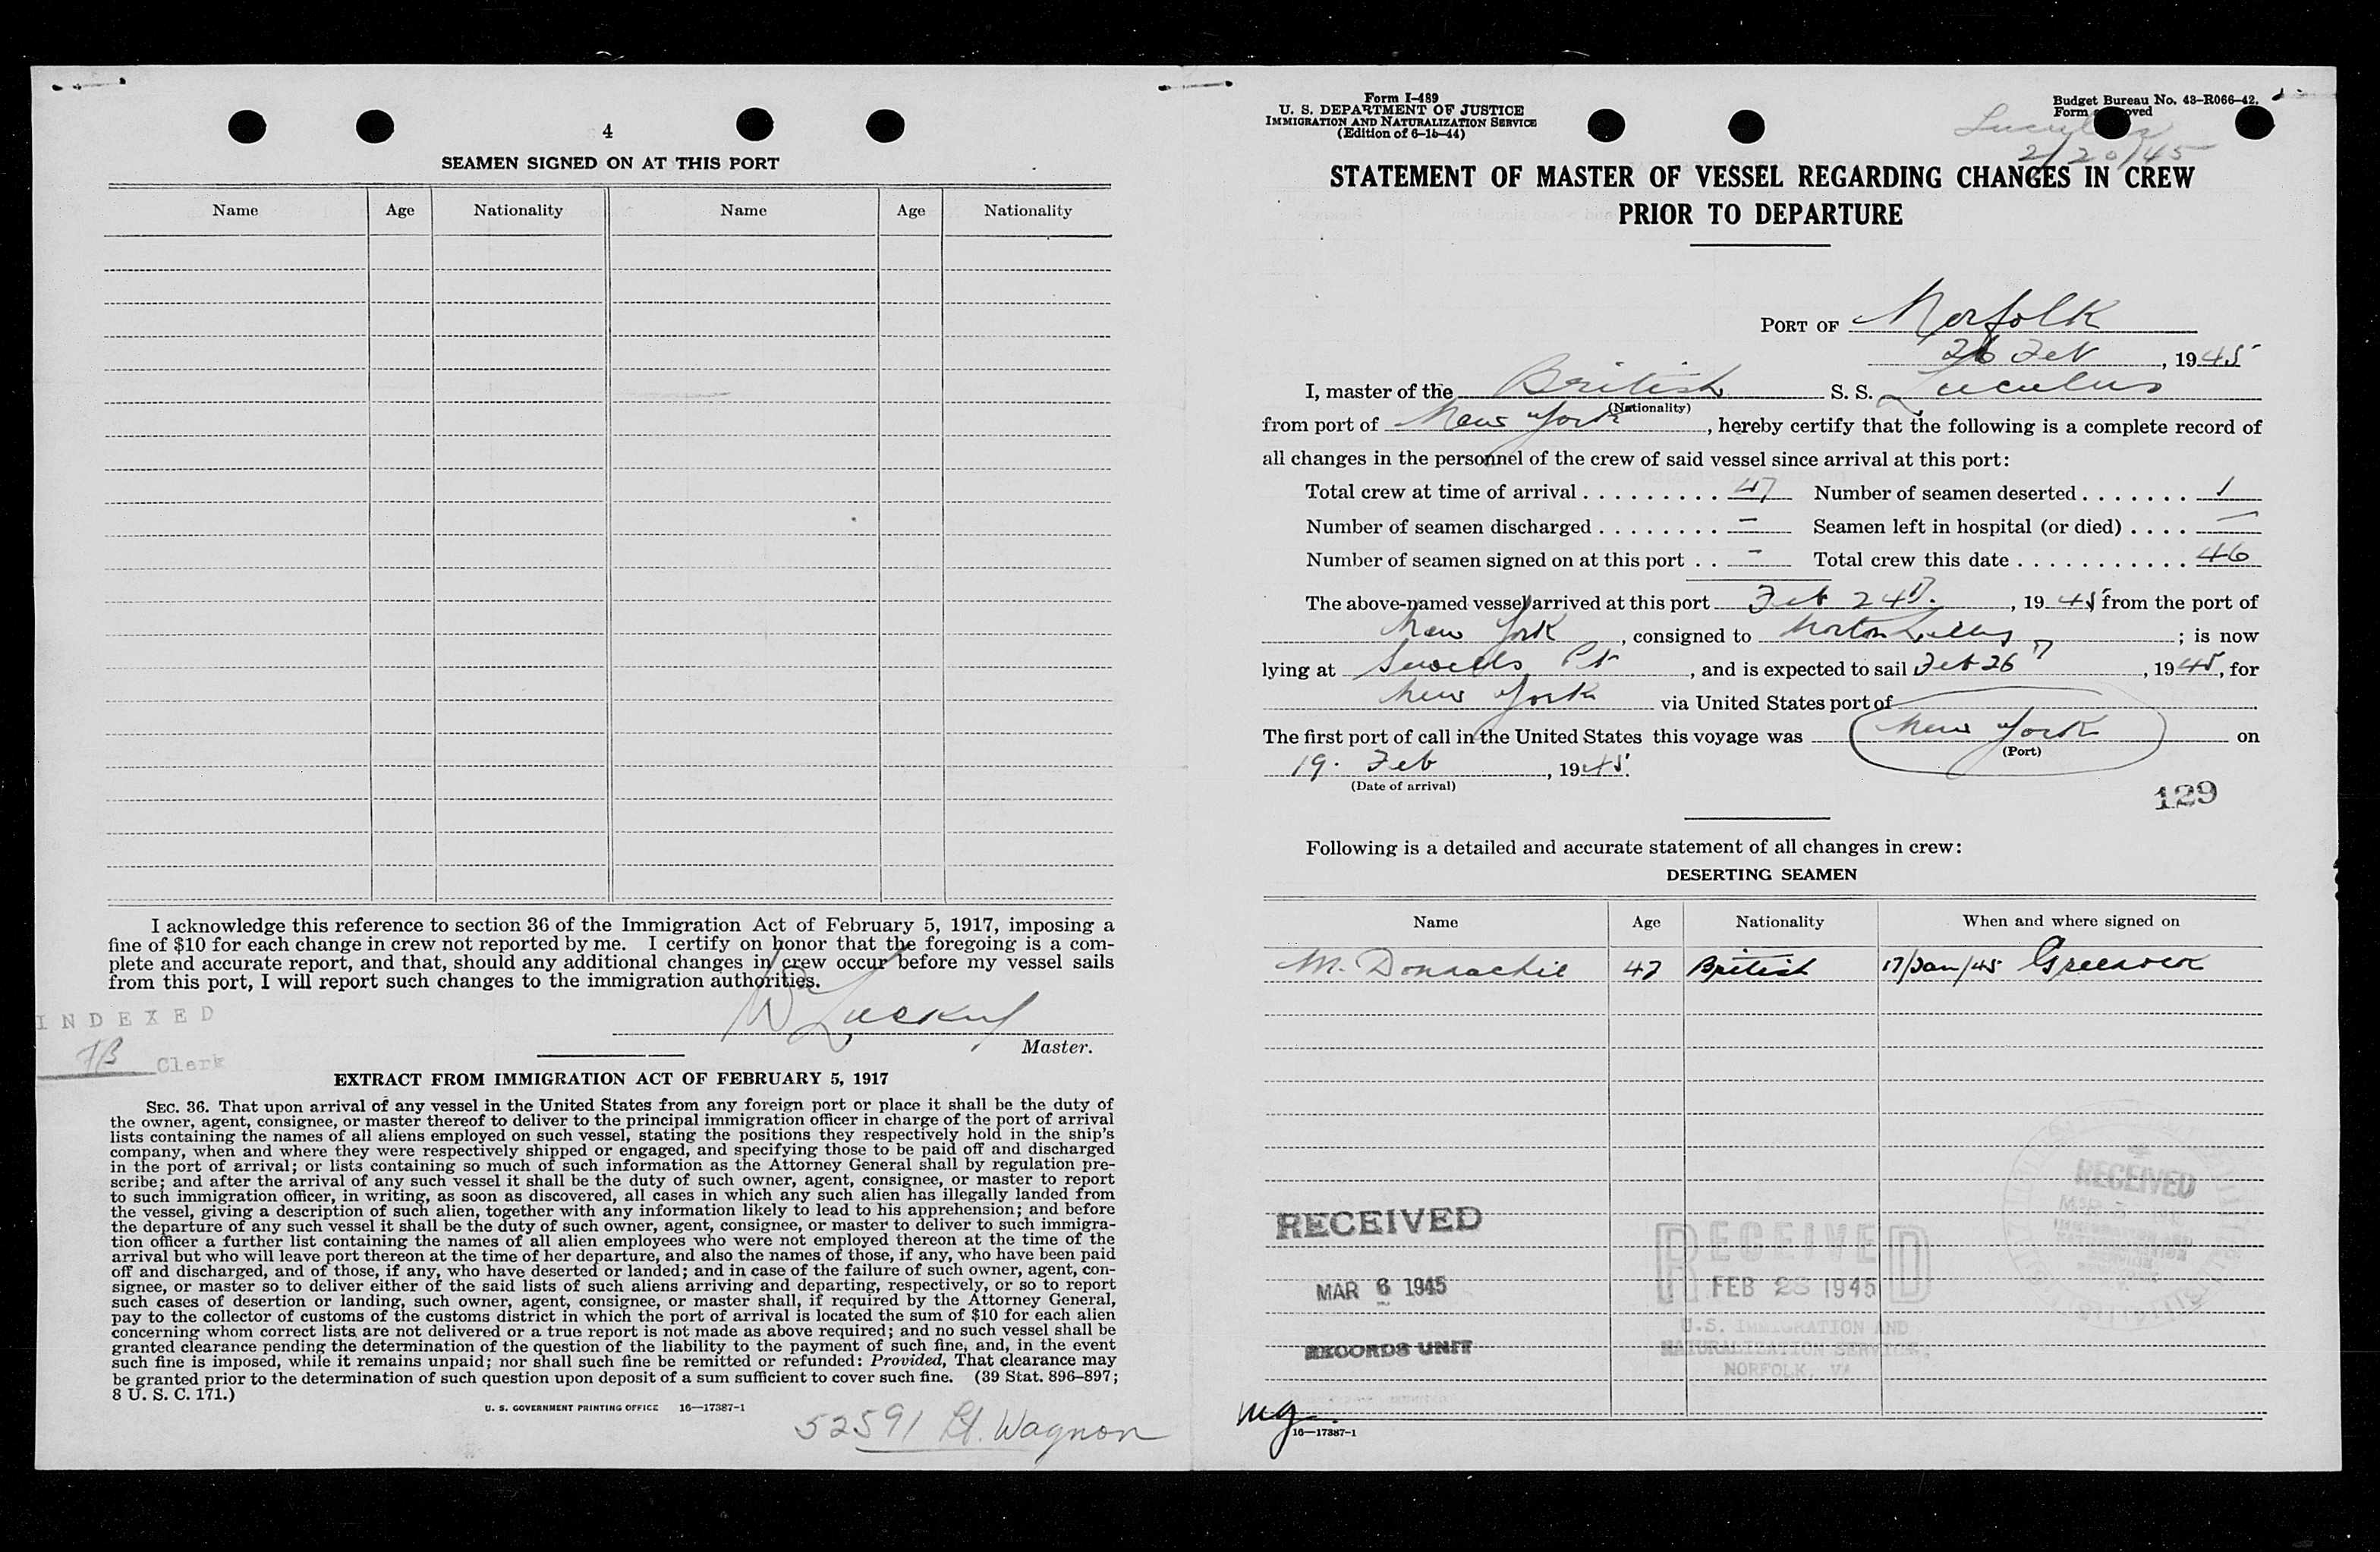 4
SEAMEN SIGNED ON AT THIS PORT
Name Age Nationality Name Age Nationality
I acknowledge this reference to section 36 of the Immigration Act of February 5, 1917, imposing a
fine of $10 for each change in crew not reported by me. I certify on honor that the foregoing is a com-
plete and accurate report, and that, should any additional changes in crew occur before my vessel sails
from this port, I will report such changes to the immigration authorities.
INDEXED
Clerk
Master.
EXTRACT FROM IMMIGRATION ACT OF FEBRUARY 5, 1917
SEC. 36. That upon arrival of any vessel in the United States from any foreign port or place it shall be the duty of
the owner, agent, consignee, or master thereof to deliver to the principal immigration officer in charge of the port of arrival
lists containing the names of all aliens employed on such vessel, stating the positions they respectively hold in the ship's
company, when and where they were respectively shipped or engaged, and specifying those to be paid off and discharged
in the port of arrival; or lists containing so much of such information as the Attorney General shall by regulation pre-
scribe; and after the arrival of any such vessel it shall be the duty of such owner, agent, consignee, or master to report
to such immigration officer, in writing, as soon as discovered, all cases in which any such alien has illegally landed from
the vessel, giving a description of such alien, together with any information likely to lead to his apprehension; and before
the departure of any such vessel it shall be the duty of such owner, agent, consignee, or master to deliver to such immigra-
tion officer a further list containing the names of all alien employees who were not employed thereon at the time of the
arrival but who will leave port thereon at the time of her departure, and also the names of those, if any, who have been paid
off and discharged, and of those, if any, who have deserted or landed; and in case of the failure of such owner, agent, con-
signee, or master so to deliver either of the said lists of such aliens arriving and departing, respectively, or so to report
such cases of desertion or landing, such owner, agent, consignee, or master shall, if required by the Attorney General,
pay to the collector of customs of the customs district in which the port of arrival is located the sum of $10 for each alien
concerning whom correct lists are not delivered or a true report is not made as above required; and no such vessel shall be
granted clearance pending the determination of the question of the liability to the payment of such fine, and, in the event
such fine is imposed, while it remains unpaid; nor shall such fine be remitted or refunded: Provided, That clearance may
be granted prior to the determination of such question upon deposit of a sum sufficient to cover such fine. (39 Stat. 896-897;
8 U. S. C. 171.)
U. S. GOVERNMENT PRINTING OFFICE 16—17387-1
52591 Lt. Wagnon
Form I-489
U. S. DEPARTMENT OF JUSTICE
IMMIGRATION AND NATURALIZATION SERVICE
(Edition of 6-15-44)
Budget Bureau No. 43-R066-42.
Form
2/20/45
STATEMENT OF MASTER OF VESSEL REGARDING CHANGES IN CREW
PRIOR TO DEPARTURE
PORT OF Norfolk
26 Feb, 1945
I, master of the British S. S. Luculus
(Nationality)
from port of New York, hereby certify that the following is a complete record of
all changes in the personnel of the crew of said vessel since arrival at this port:
Total crew at time of arrival . . . . . . . . . 47 Number of seamen deserted . . . . . . . 1
Number of seamen discharged . . . . . . . . – Seamen left in hospital (or died) . . . . –
Number of seamen signed on at this port . . – Total crew this date . . . . . . . . . . . 46
The above-named vessel arrived at this port Feb 24th, 1945, from the port of
New York, consigned to Norton Lilly; is now
lying at Sewells Pt, and is expected to sail Feb 26th, 1945, for
New York via United States port of
The first port of call in the United States this voyage was New York on
(Port)
19. Feb, 1945.
(Date of arrival)
129
Following is a detailed and accurate statement of all changes in crew:
DESERTING SEAMEN
Name Age Nationality When and where signed on
M. Donnachie 47 British 17/Jan/45 Greenock
RECEIVED
MAR 6 1945
RECORDS UNIT
RECEIVED
FEB 28 1945
U.S. IMMIGRATION AND
NATURALIZATION SERVICE,
NORFOLK, VA
RECEIVED
mg.
16—17387-1